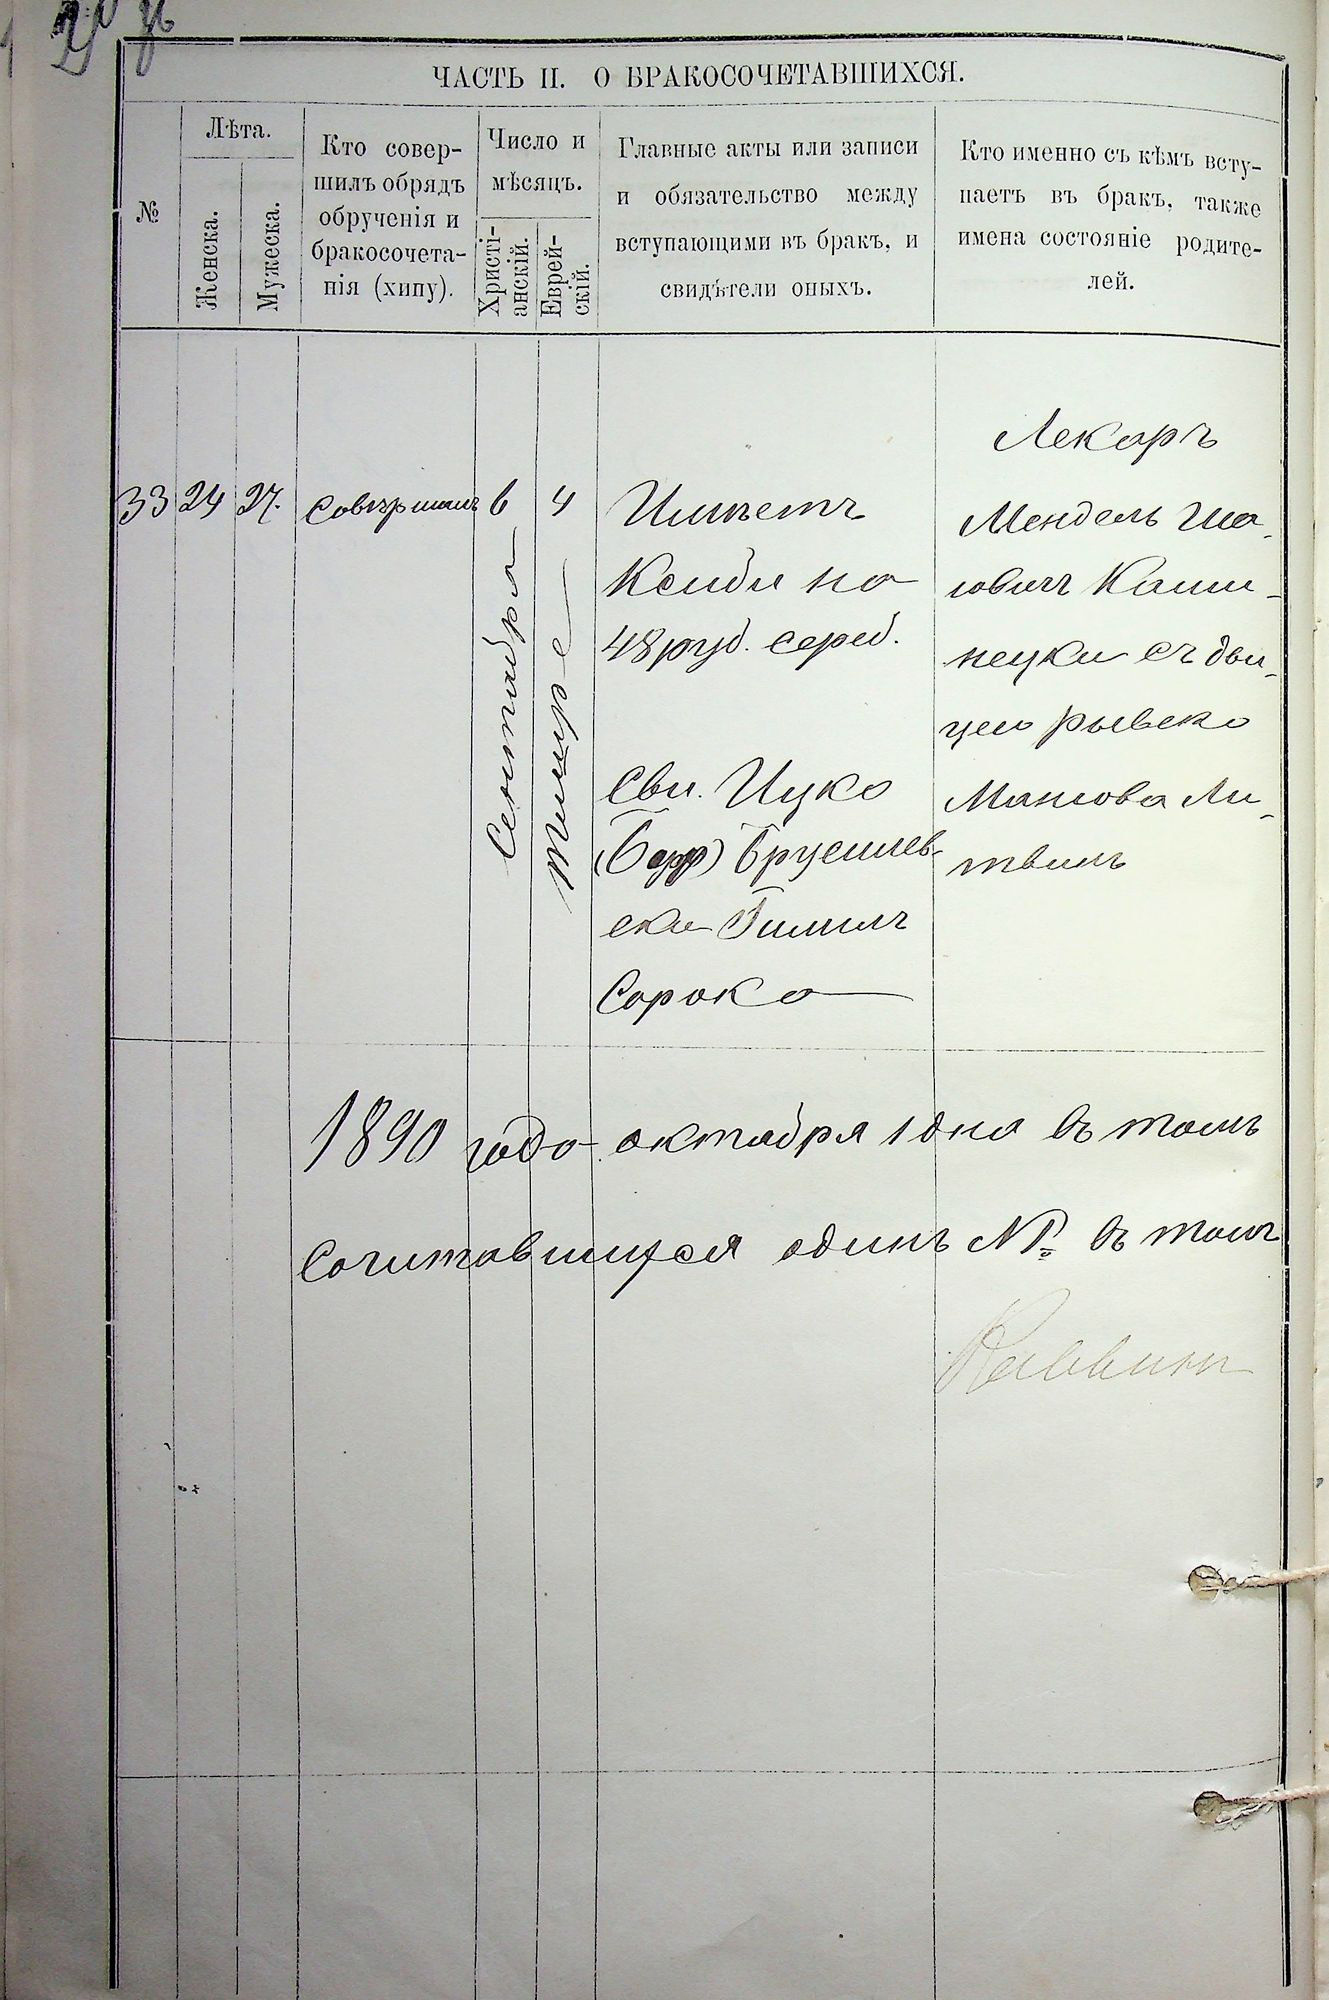 ЧАСТЬ II. О БРАКОСОЧЕТАВШИХСЯ.
№
Лѣта.
Женска.
Мужеска.
Кто совер-
шилъ обрядъ
обрученія и
бракосочета-
нія (хипу).
Число и
мѣсяцъ.
Христі-
анскій.
Еврей-
скій.
Главные акты или записи
и обязательство между
вступающими въ бракъ, и
свидѣтели оныхъ.
Кто именно съ кѣмъ всту-
паетъ въ бракъ, также
имена состояніе родите-
лей.
33 24 27.
6
Сентября
4
Тишре
на
48 руб. сереб.
Сви. Ицко
Сорока
Лекаръ
Мендель Ша-
ъ Ками-
нецки съ дви-
цею Рывка
Ли-
твинъ
1890 года октября 1 дна въ томъ
Сочитавшихся одинъ №. въ томъ
Раввинъ